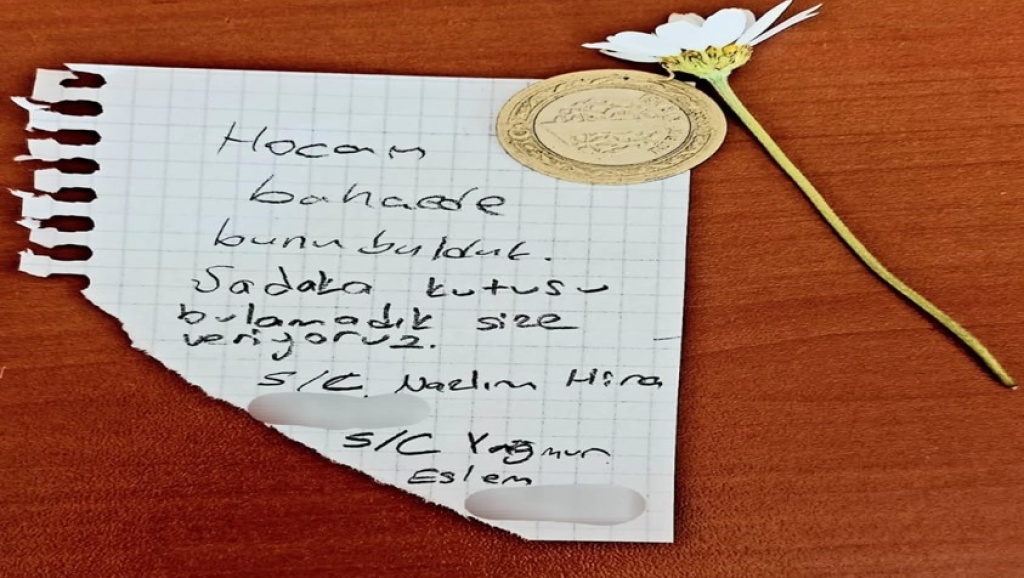 Hocam
bahacde
bunu bulduk.
Sadaka kutusu
bulamadık size
veriyoruz.
5/C Nazlım Hira
5/C Yağmur
Eslem